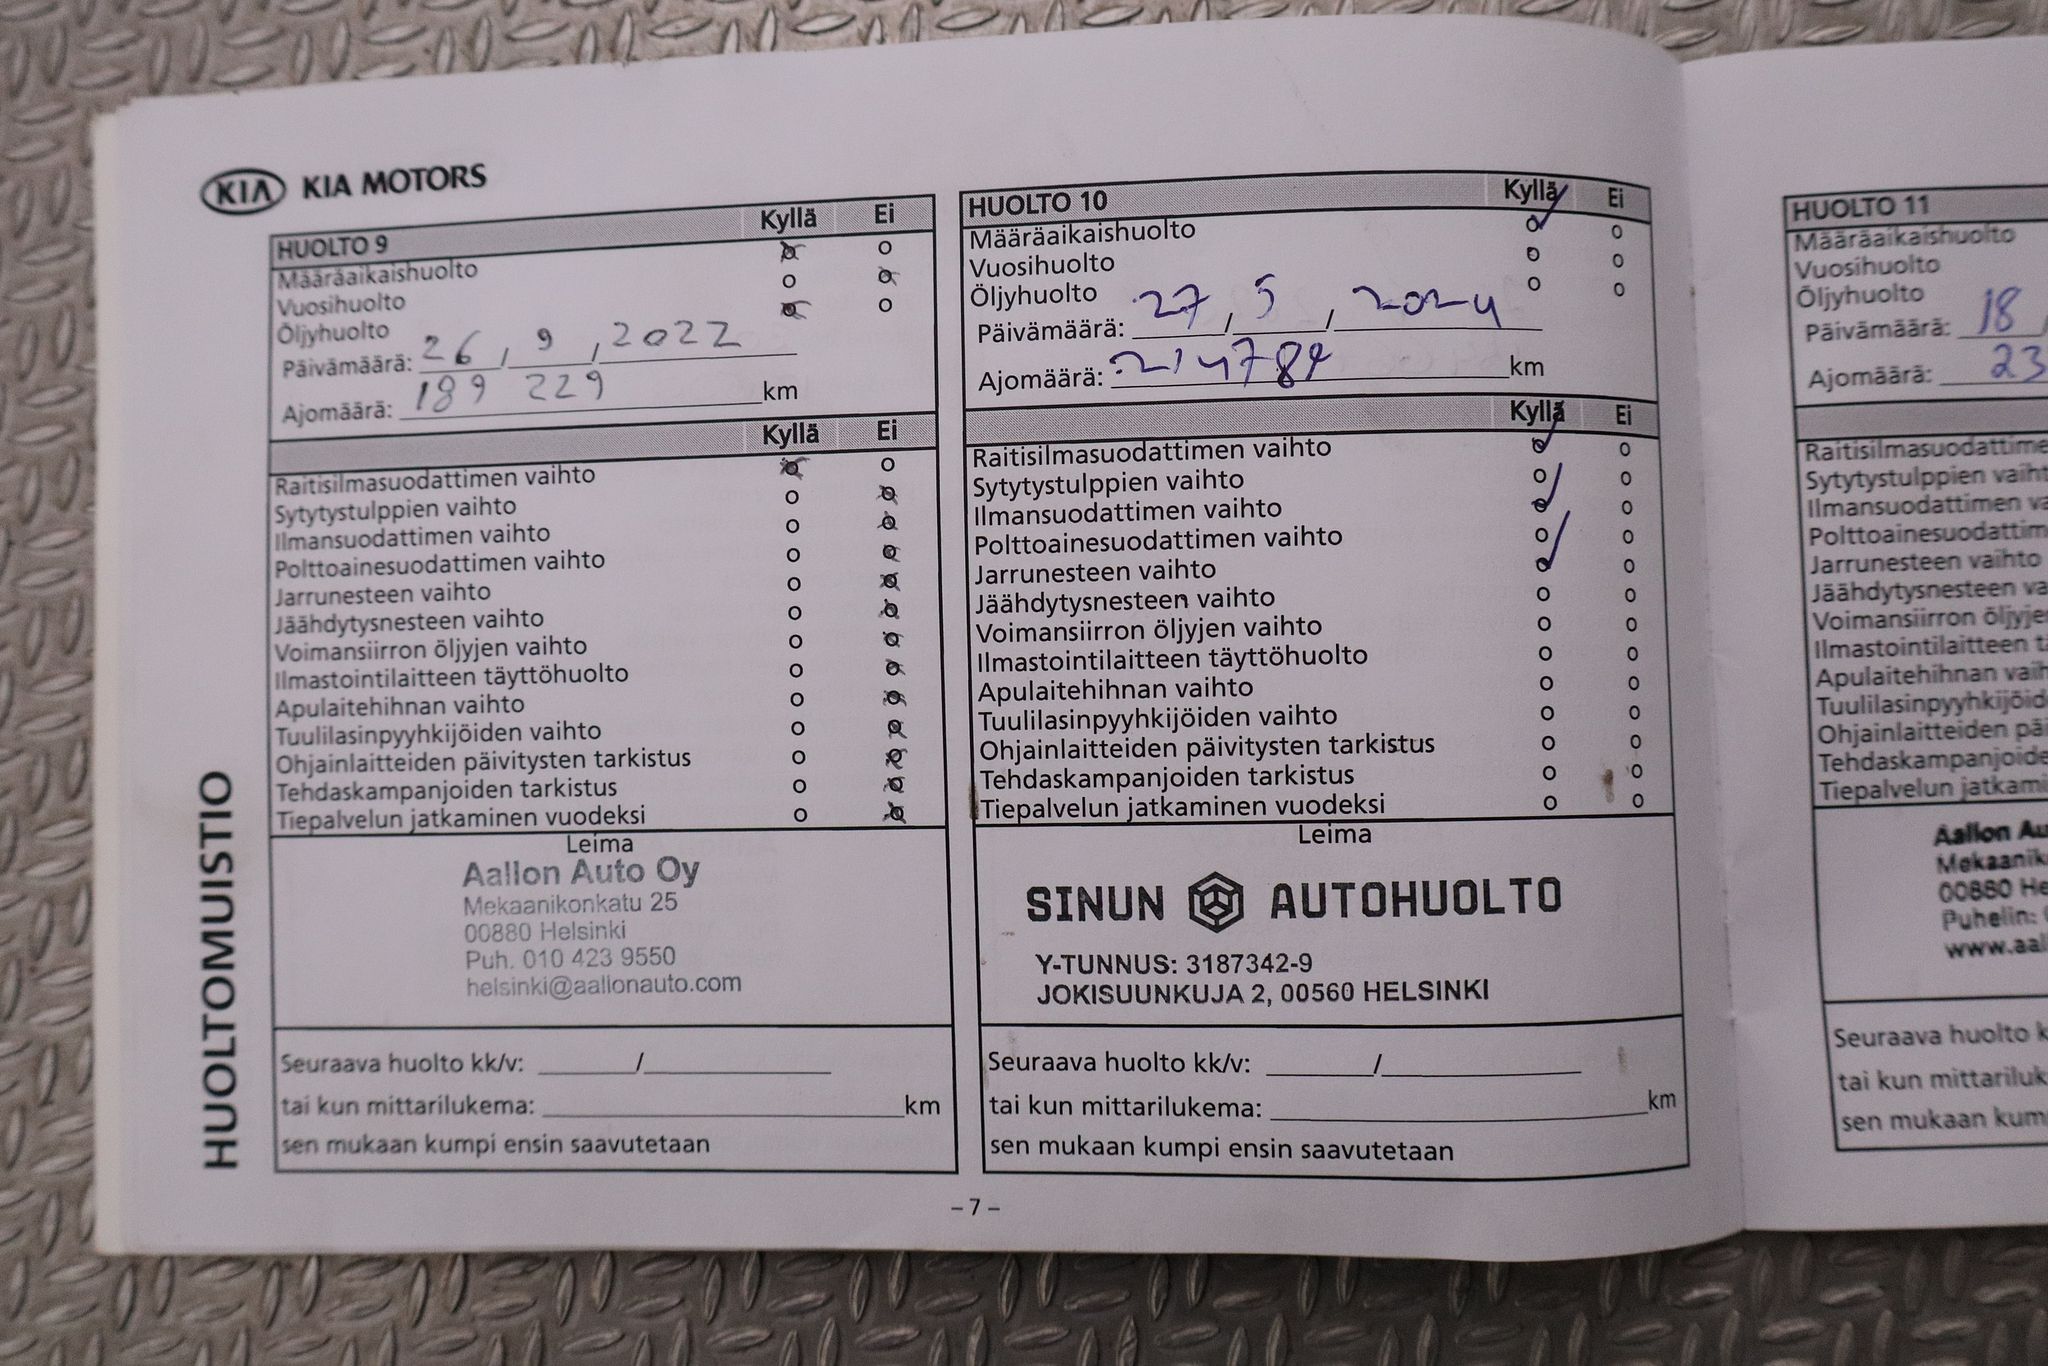 KIA KIA MOTORS
HUOLTOMUISTIO
HUOLTO 9 Kyllä Ei
Määräaikaishuolto o o
Vuosihuolto o o
Öljyhuolto o o
Päivämäärä: 26 / 9 / 2022
Ajomäärä: 189 229 km
Kyllä Ei
Raitisilmasuodattimen vaihto o o
Sytytystulppien vaihto o o
Ilmansuodattimen vaihto o o
Polttoainesuodattimen vaihto o o
Jarrunesteen vaihto o o
Jäähdytysnesteen vaihto o o
Voimansiirron öljyjen vaihto o o
Ilmastointilaitteen täyttöhuolto o o
Apulaitehihnan vaihto o o
Tuulilasinpyyhkijöiden vaihto o o
Ohjainlaitteiden päivitysten tarkistus o o
Tehdaskampanjoiden tarkistus o o
Tiepalvelun jatkaminen vuodeksi o o
Leima
Aallon Auto Oy
Mekaanikonkatu 25
00880 Helsinki
Puh. 010 423 9550
helsinki@aallonauto.com
Seuraava huolto kk/v: /
tai kun mittarilukema: km
sen mukaan kumpi ensin saavutetaan
HUOLTO 10 Kyllä Ei
Määräaikaishuolto o o
Vuosihuolto o o
Öljyhuolto o o
Päivämäärä: 27 / 5 / 2024
Ajomäärä: km
Kyllä Ei
Raitisilmasuodattimen vaihto o o
Sytytystulppien vaihto o o
Ilmansuodattimen vaihto o o
Polttoainesuodattimen vaihto o o
Jarrunesteen vaihto o o
Jäähdytysnesteen vaihto o o
Voimansiirron öljyjen vaihto o o
Ilmastointilaitteen täyttöhuolto o o
Apulaitehihnan vaihto o o
Tuulilasinpyyhkijöiden vaihto o o
Ohjainlaitteiden päivitysten tarkistus o o
Tehdaskampanjoiden tarkistus o o
Tiepalvelun jatkaminen vuodeksi o o
Leima
SINUN AUTOHUOLTO
Y-TUNNUS: 3187342-9
JOKISUUNKUJA 2, 00560 HELSINKI
Seuraava huolto kk/v: /
tai kun mittarilukema: km
sen mukaan kumpi ensin saavutetaan
– 7 –
HUOLTO 11
Määräaikaishuolto
Vuosihuolto
Öljyhuolto
Päivämäärä: 18
Ajomäärä: 23
Raitisilmasuodattime
Sytytystulppien vaiht
Ilmansuodattimen va
Polttoainesuodattim
Jarrunesteen vaihto
Jäähdytysnesteen va
Voimansiirron öljyje
Ilmastointilaitteen t
Apulaitehihnan vaih
Tuulilasinpyyhkijöid
Ohjainlaitteiden päi
Tehdaskampanjoide
Tiepalvelun jatkami
Aallon Au
Mekaanik
00880 He
Puhelin:
www.aal
Seuraava huolto k
tai kun mittariluk
sen mukaan kum